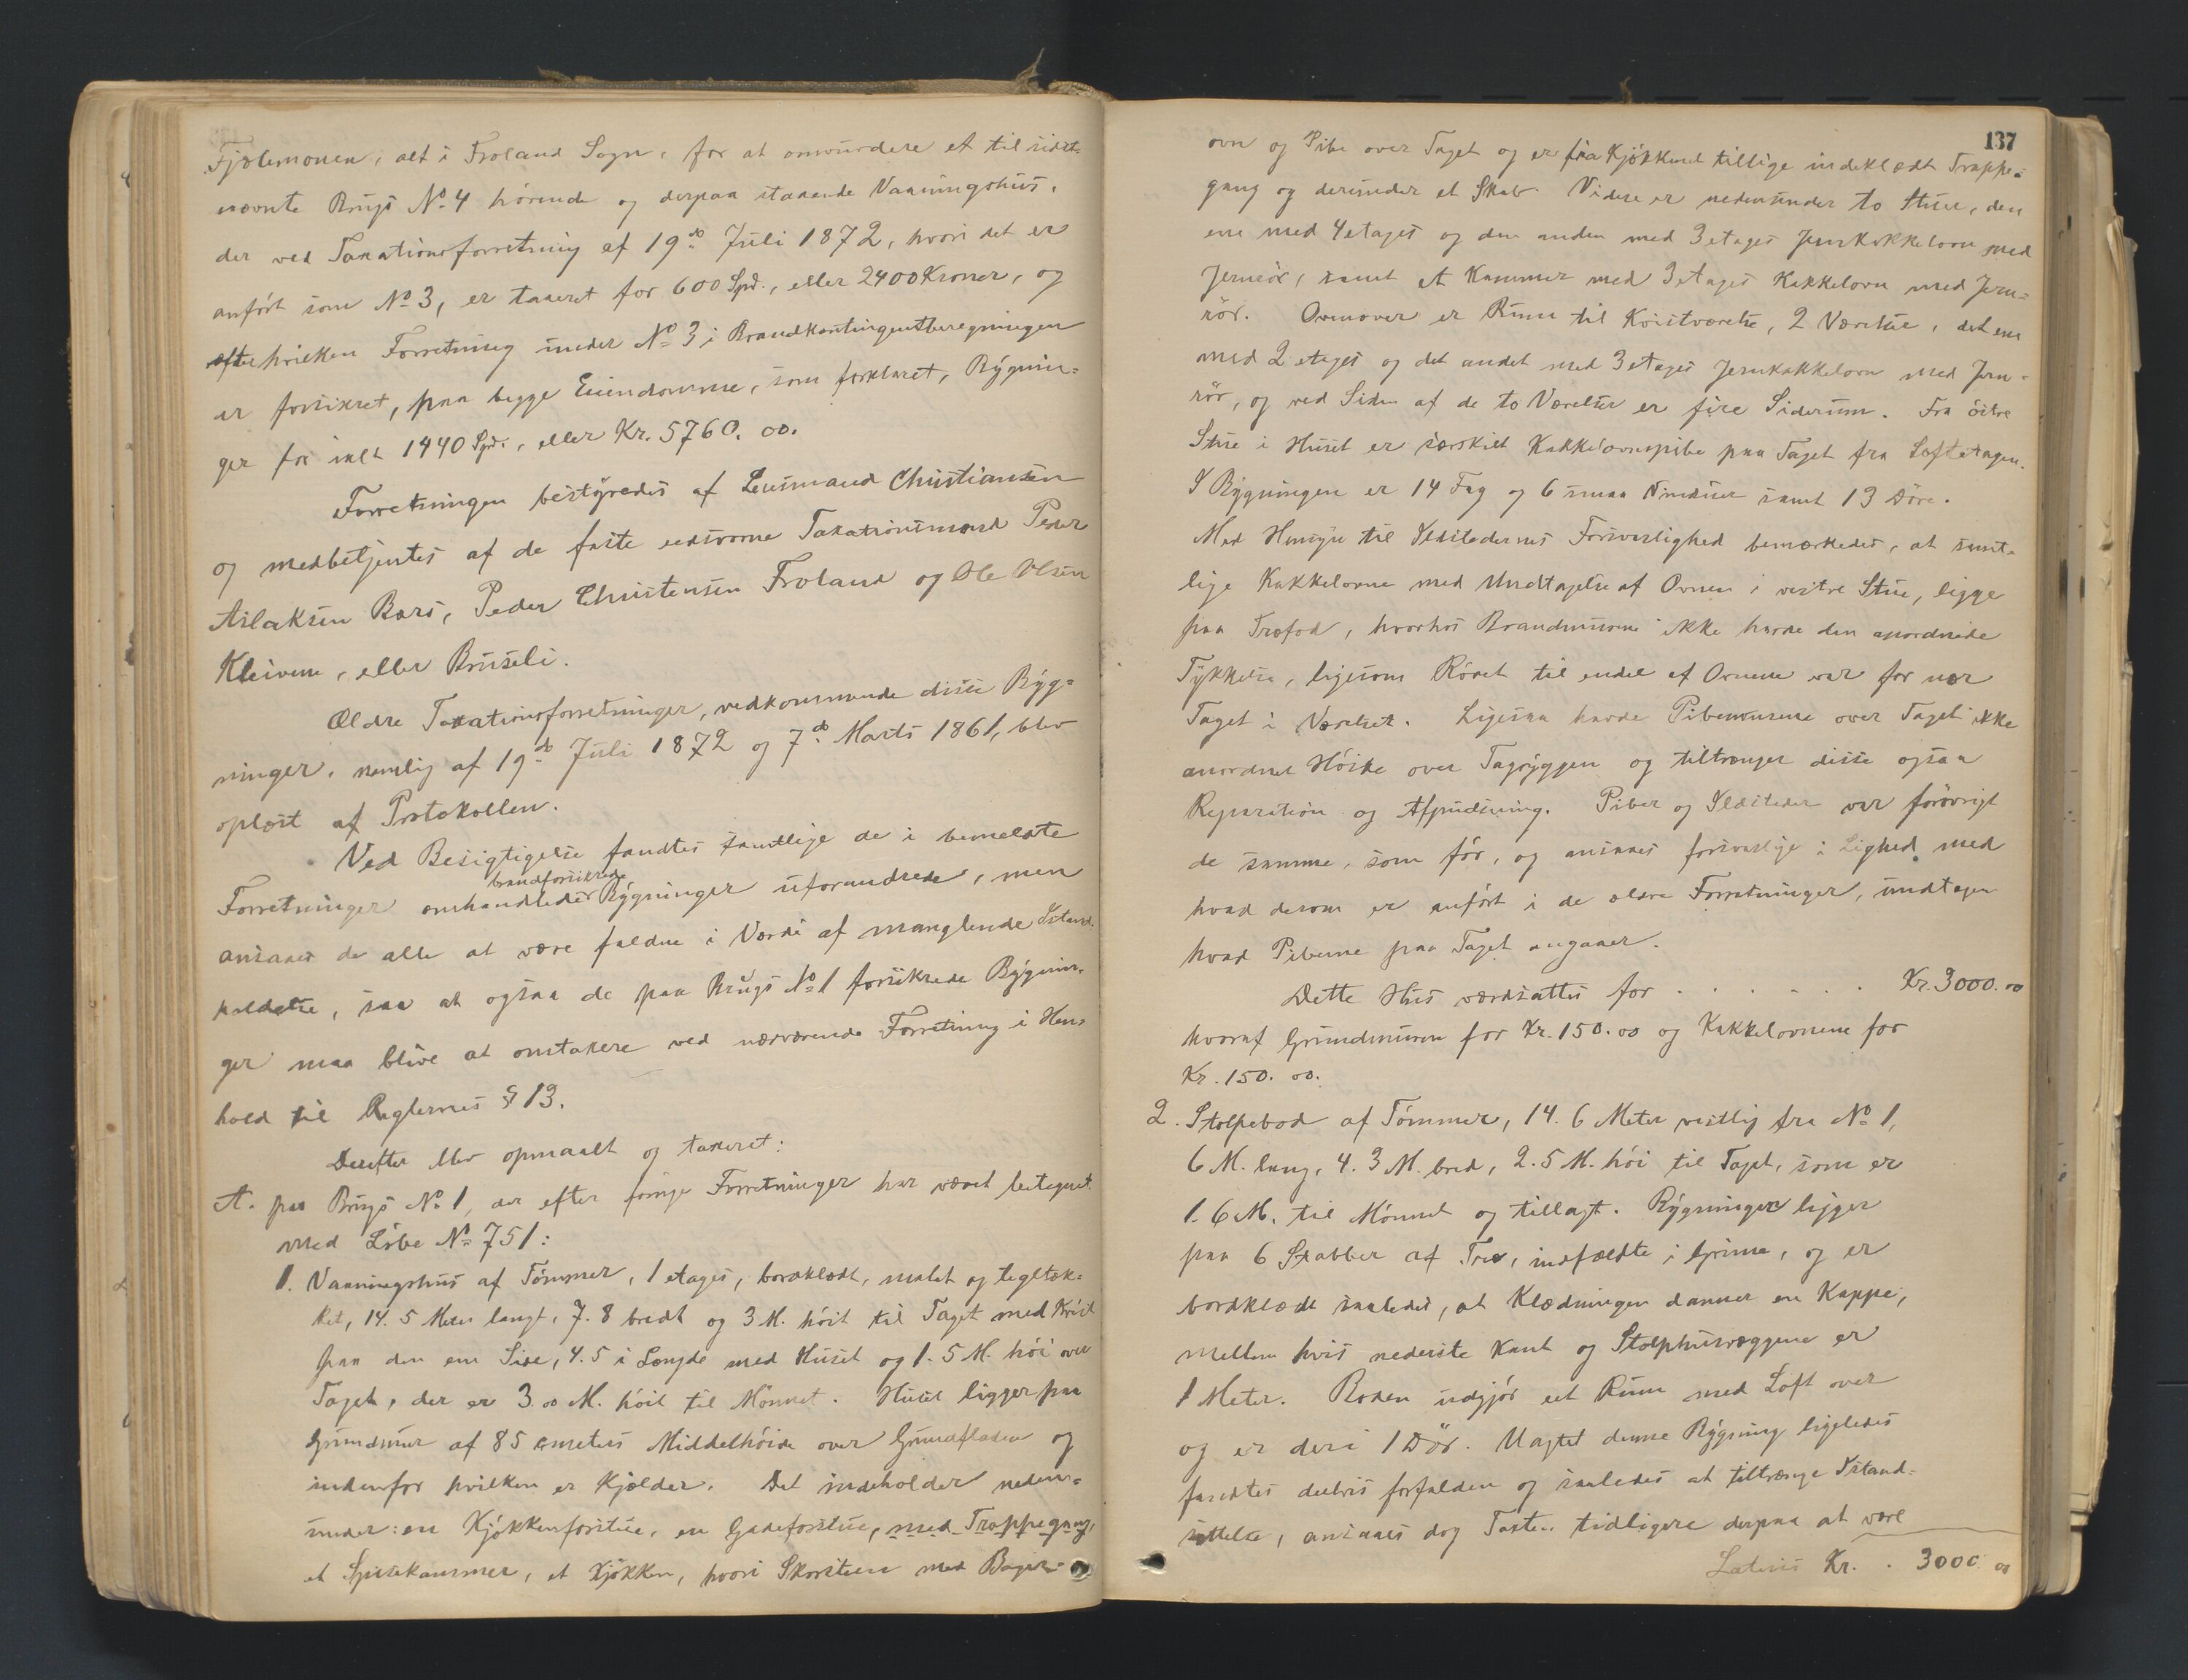 Fjælemonen, alt i Froland Sogn, for at omvurdere et til sidst-
nævnte Brugs No 4 hörende og derpaa staaende Vaaningshus,
der ved Taxationsforretning af 19de Juli 1872, hvori det er
anfört som No 3, er taxeret for 600 Spd., eller 2400 Kroner, og
efter hvilken Forretning under No 3 i Brandkontingentberegningen
er forsikret, paa begge Eiendomme, som forklaret, Bygnin-
ger for ialt 1440 Spd., eller Kr. 5760. 00.
Forretningen bestyredes af Lensmand Christiansen
og medbetjentes af de faste edsvorne Taxationsmænd Peder
Aslaksen Børs, Peder Christensen Froland og Ole Olsen
Kleivene, eller Bruseli.
Ældre Taxationsforretninger, vedkommende disse Byg-
ninger, nemlig af 19de Juli 1872 og 7de Marts 1861, blev
oplæst af Protokollen.
Ved Besigtigelse fandtes samtlige de i bemeldte
brandforsikrede
Forretninger omhandlede Bygninger uforandrede, men
ansaaes de alle at være faldne i Værdi af manglende Istand-
holdelse, saa at ogsaa de paa Brugs No 1 forsikrede Bygnin-
ger maa blive at omtaxere ved nærværende Forretning i Hen-
hold til Reglernes § 13.
Derefter blev opmaalt og taxeret:
A. paa Brugs No 1, der efter forrige Forretninger har været betegnet
med Löbe No 751:
1. Vaaningshus af Tömmer, 1 etages, bordklædt, malet og tegltæk-
ket, 14.5 Meter langt, 7.8 bredt og 3 M. höit til Taget med Kvist
paa den ene Side, 4.5 i Længde med Huset og 1.5 M. höi over
Taget, der er 3.00 M. höit til Mönnet. Huset ligger paa
Grundmur af 85 cmeters Middelhöide over Grundfladen og
indenfor hvilken er Kjælder. Det indeholder neden-
under: en Kjökkenforstue, en Gadeforstue, med Trappegang,
et Spisekammer, et Kjökken, hvori Skorsteen med Bager-
137
ovn og Pibe over Taget og er fra Kjökkenet tillige indeklædt Trappe-
gang og derunder et Skab. Videre er nedenunder to Stuer, den
ene med 4 etages og den anden med 3 etages Jernkakkelovn med
Jernrör, samt et Kammer med 3 etages Kakkelovn med Jern-
rör. Ovenover er Rum til Kvistværelse, 2 Værelser, det ene
med 2 etages og det andet med 3 etages Jernkakkelovn med Jern-
rör, og ved Siden af de to Værelser er fire Siderum. Fra östre
Stue i Huset er særskilt Kakkelovnspibe paa Taget fra Loftetagen.
I Bygningen er 14 Fag og 6 smaa Vinduer samt 13 Döre.
Med Hensyn til Ildstedernes Forsvarlighed bemærkedes, at samt-
lige Kakkelovne med Undtagelse af Ovnen i vestre Stue, ligge
paa Træfod, hvorhos Brandmurene ikke havde den anordnede
Tykkelse, ligesom Röret til endel af Ovnene var for nær
Taget i Værelset. Ligesaa havde Pibemurene over Taget ikke
anordnet Höide over Tagryggen og tiltrænger disse ogsaa
Reparation og Afpudsning. Piber og Ildsteder var forövrigt
de samme, som för, og ansaaes forsvarlige i Lighed med
hvad derom er anfört i de ældre Forretninger, undtagen
hvad Piberne paa Taget angaaer.
Dette Hus værdsattes for . . . . . . Kr. 3000.00
hvoraf Grundmuren for Kr. 150.00 og Kakkelovnene for
Kr. 150. 00.
2. Stolpebod af Tömmer, 14.6 Meter vestlig fra No 1,
6 M. lang, 4.3 M. bred, 2.5 M. höi til Taget, som er
1.6 M. til Mönnet og tillagt. Bygningen ligger
paa 6 Stabber af Træ, indfældte i Grime, og er
bordklædt saaledes, at Klædningen danner en Kappe,
mellem hvis nederste Kant og Stolphusvæggene er
1 Meter. Boden udgjör eet Rum med Loft over
og er deri 1 Dör. Uagtet denne Bygning ligeledes
fandtes delvis forfalden og saaledes at tiltrænge Istand-
sættelse, ansaaes dog Taxten tidligere derpaa at være
Lateris Kr. . 3000 00